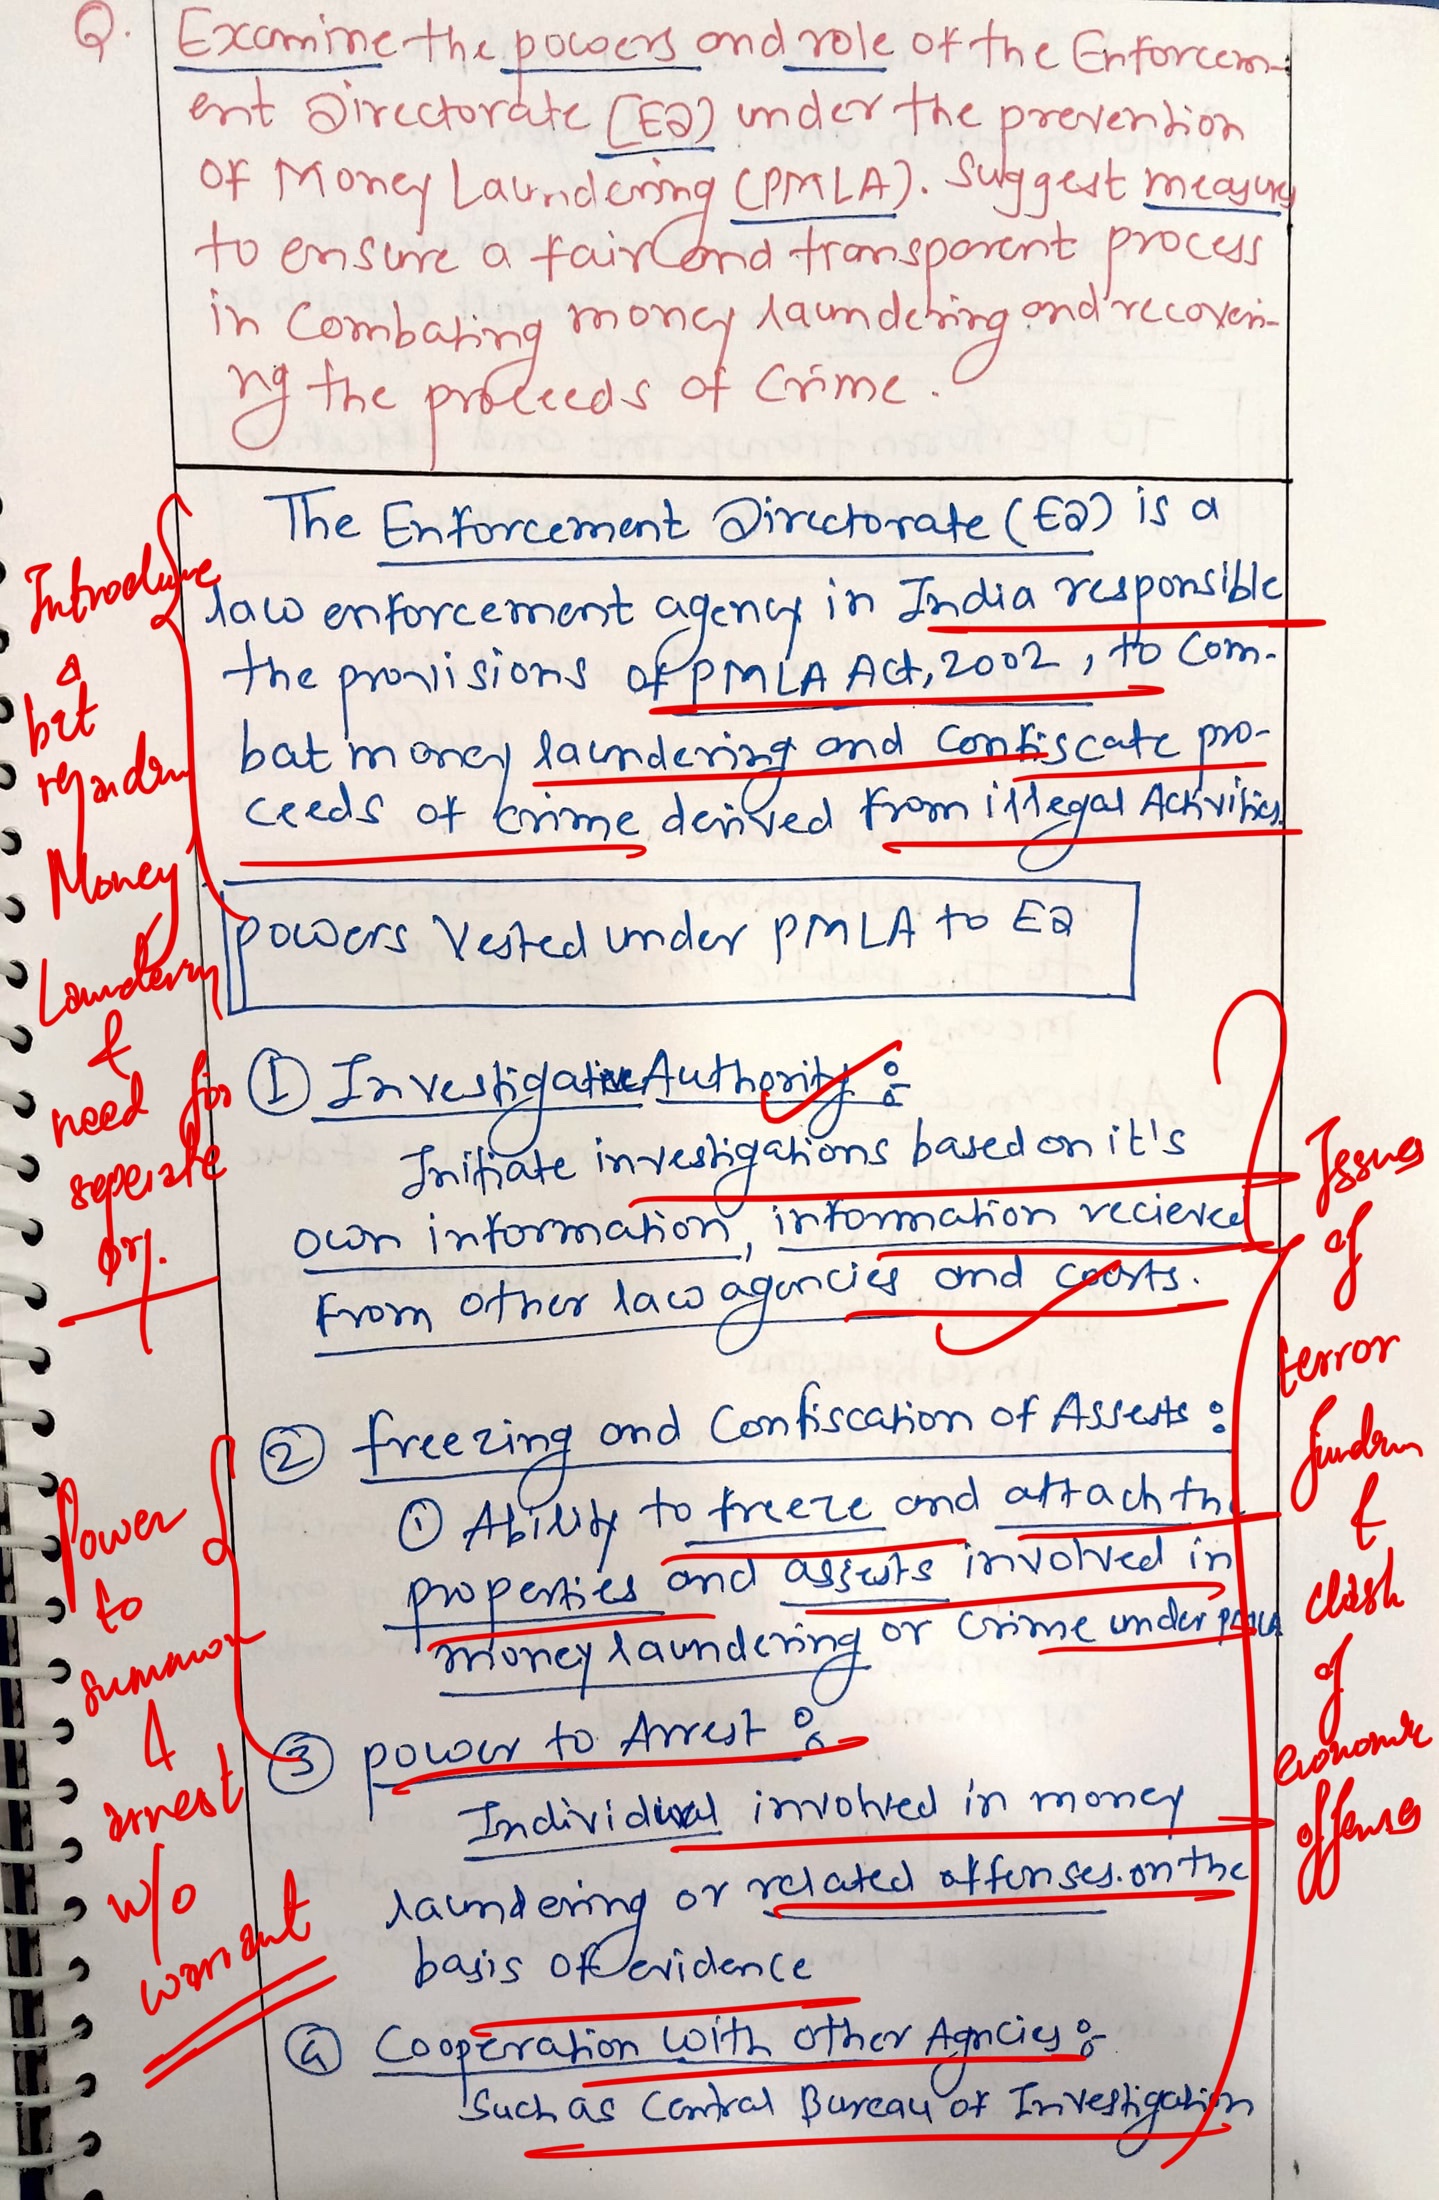 Q. Examine the powers and role of the Enforcem-
ent Directorate (ED) under the prevention
of Money Laundering (PMLA). Suggest measures
to ensure a fair and transparent process
in Combating money laundering and recoveri-
ng the proceeds of Crime.
The Enforcement Directorate (ED) is a
law enforcement agency in India responsible
the provisions of PMLA Act, 2002, to Com-
bat money laundering and confiscate pro-
ceeds of crime derived from illegal Activities.
Introduce
a
bit
regarding
Money
Laundering
&
need for
seperate
org.
Powers Vested under PMLA to ED
① Investigative Authority :-
Initiate investigations based on it's
own information, information recieved
from other law agencies and courts.
② freezing and Confiscation of Assests :
① Ability to freeze and attach the
properties and assests involved in
money laundering or crime under PMLA
③ power to Arrest :-
Individual involved in money
laundering or related offenses. on the
basis of evidence
④ Cooperation with other Agncies :-
Such as Central Bureau of Investigation
Power
to
summon
&
arrest
w/o
warrant
Issues
of
terror
funding
&
clash
of
economic
offenses